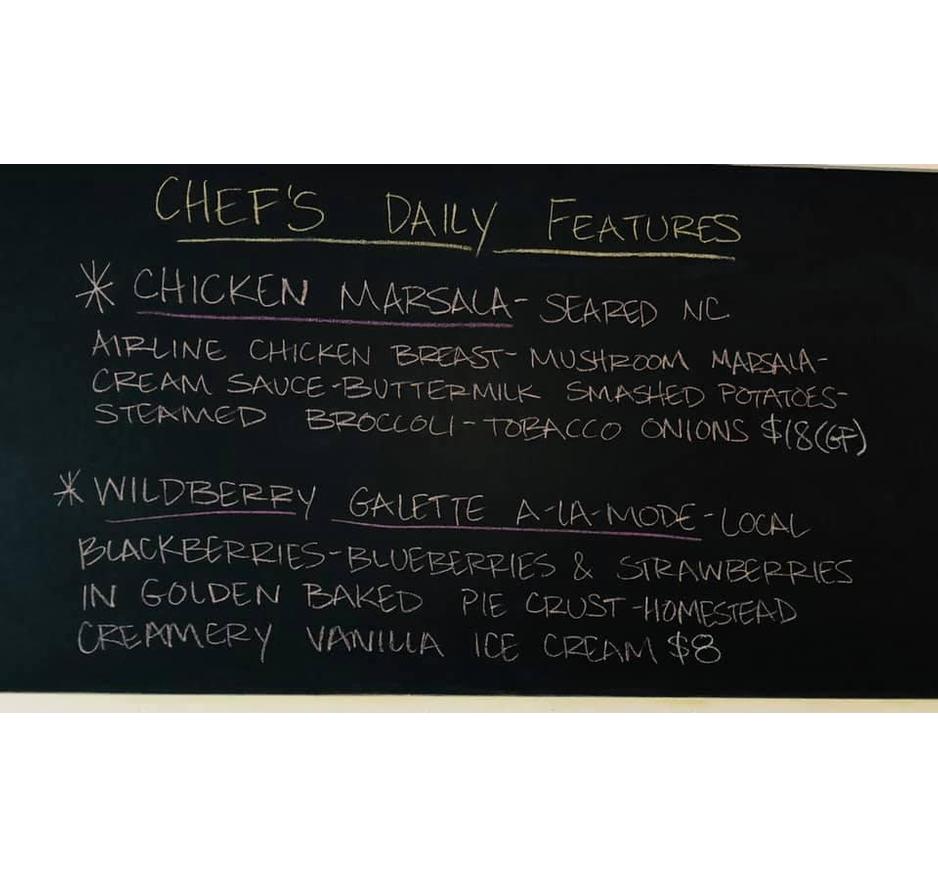 CHEF'S DAILY FEATURES
* CHICKEN MARSALA - SEARED NC
AIRLINE CHICKEN BREAST - MUSHROOM MARSALA -
CREAM SAUCE - BUTTERMILK SMASHED POTATOES -
STEAMED BROCCOLI - TOBACCO ONIONS $18 (GF)
* WILDBERRY GALETTE A-LA-MODE - LOCAL
BLACKBERRIES - BLUEBERRIES & STRAWBERRIES
IN GOLDEN BAKED PIE CRUST - HOMESTEAD
CREAMERY VANILLA ICE CREAM $8